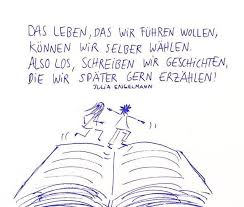 DAS LEBEN, DAS WIR FÜHREN WOLLEN,
KÖNNEN WIR SELBER WÄHLEN.
ALSO LOS, SCHREIBEN WIR GESCHICHTEN,
DIE WIR SPÄTER GERN ERZÄHLEN!
JULIA ENGELMANN